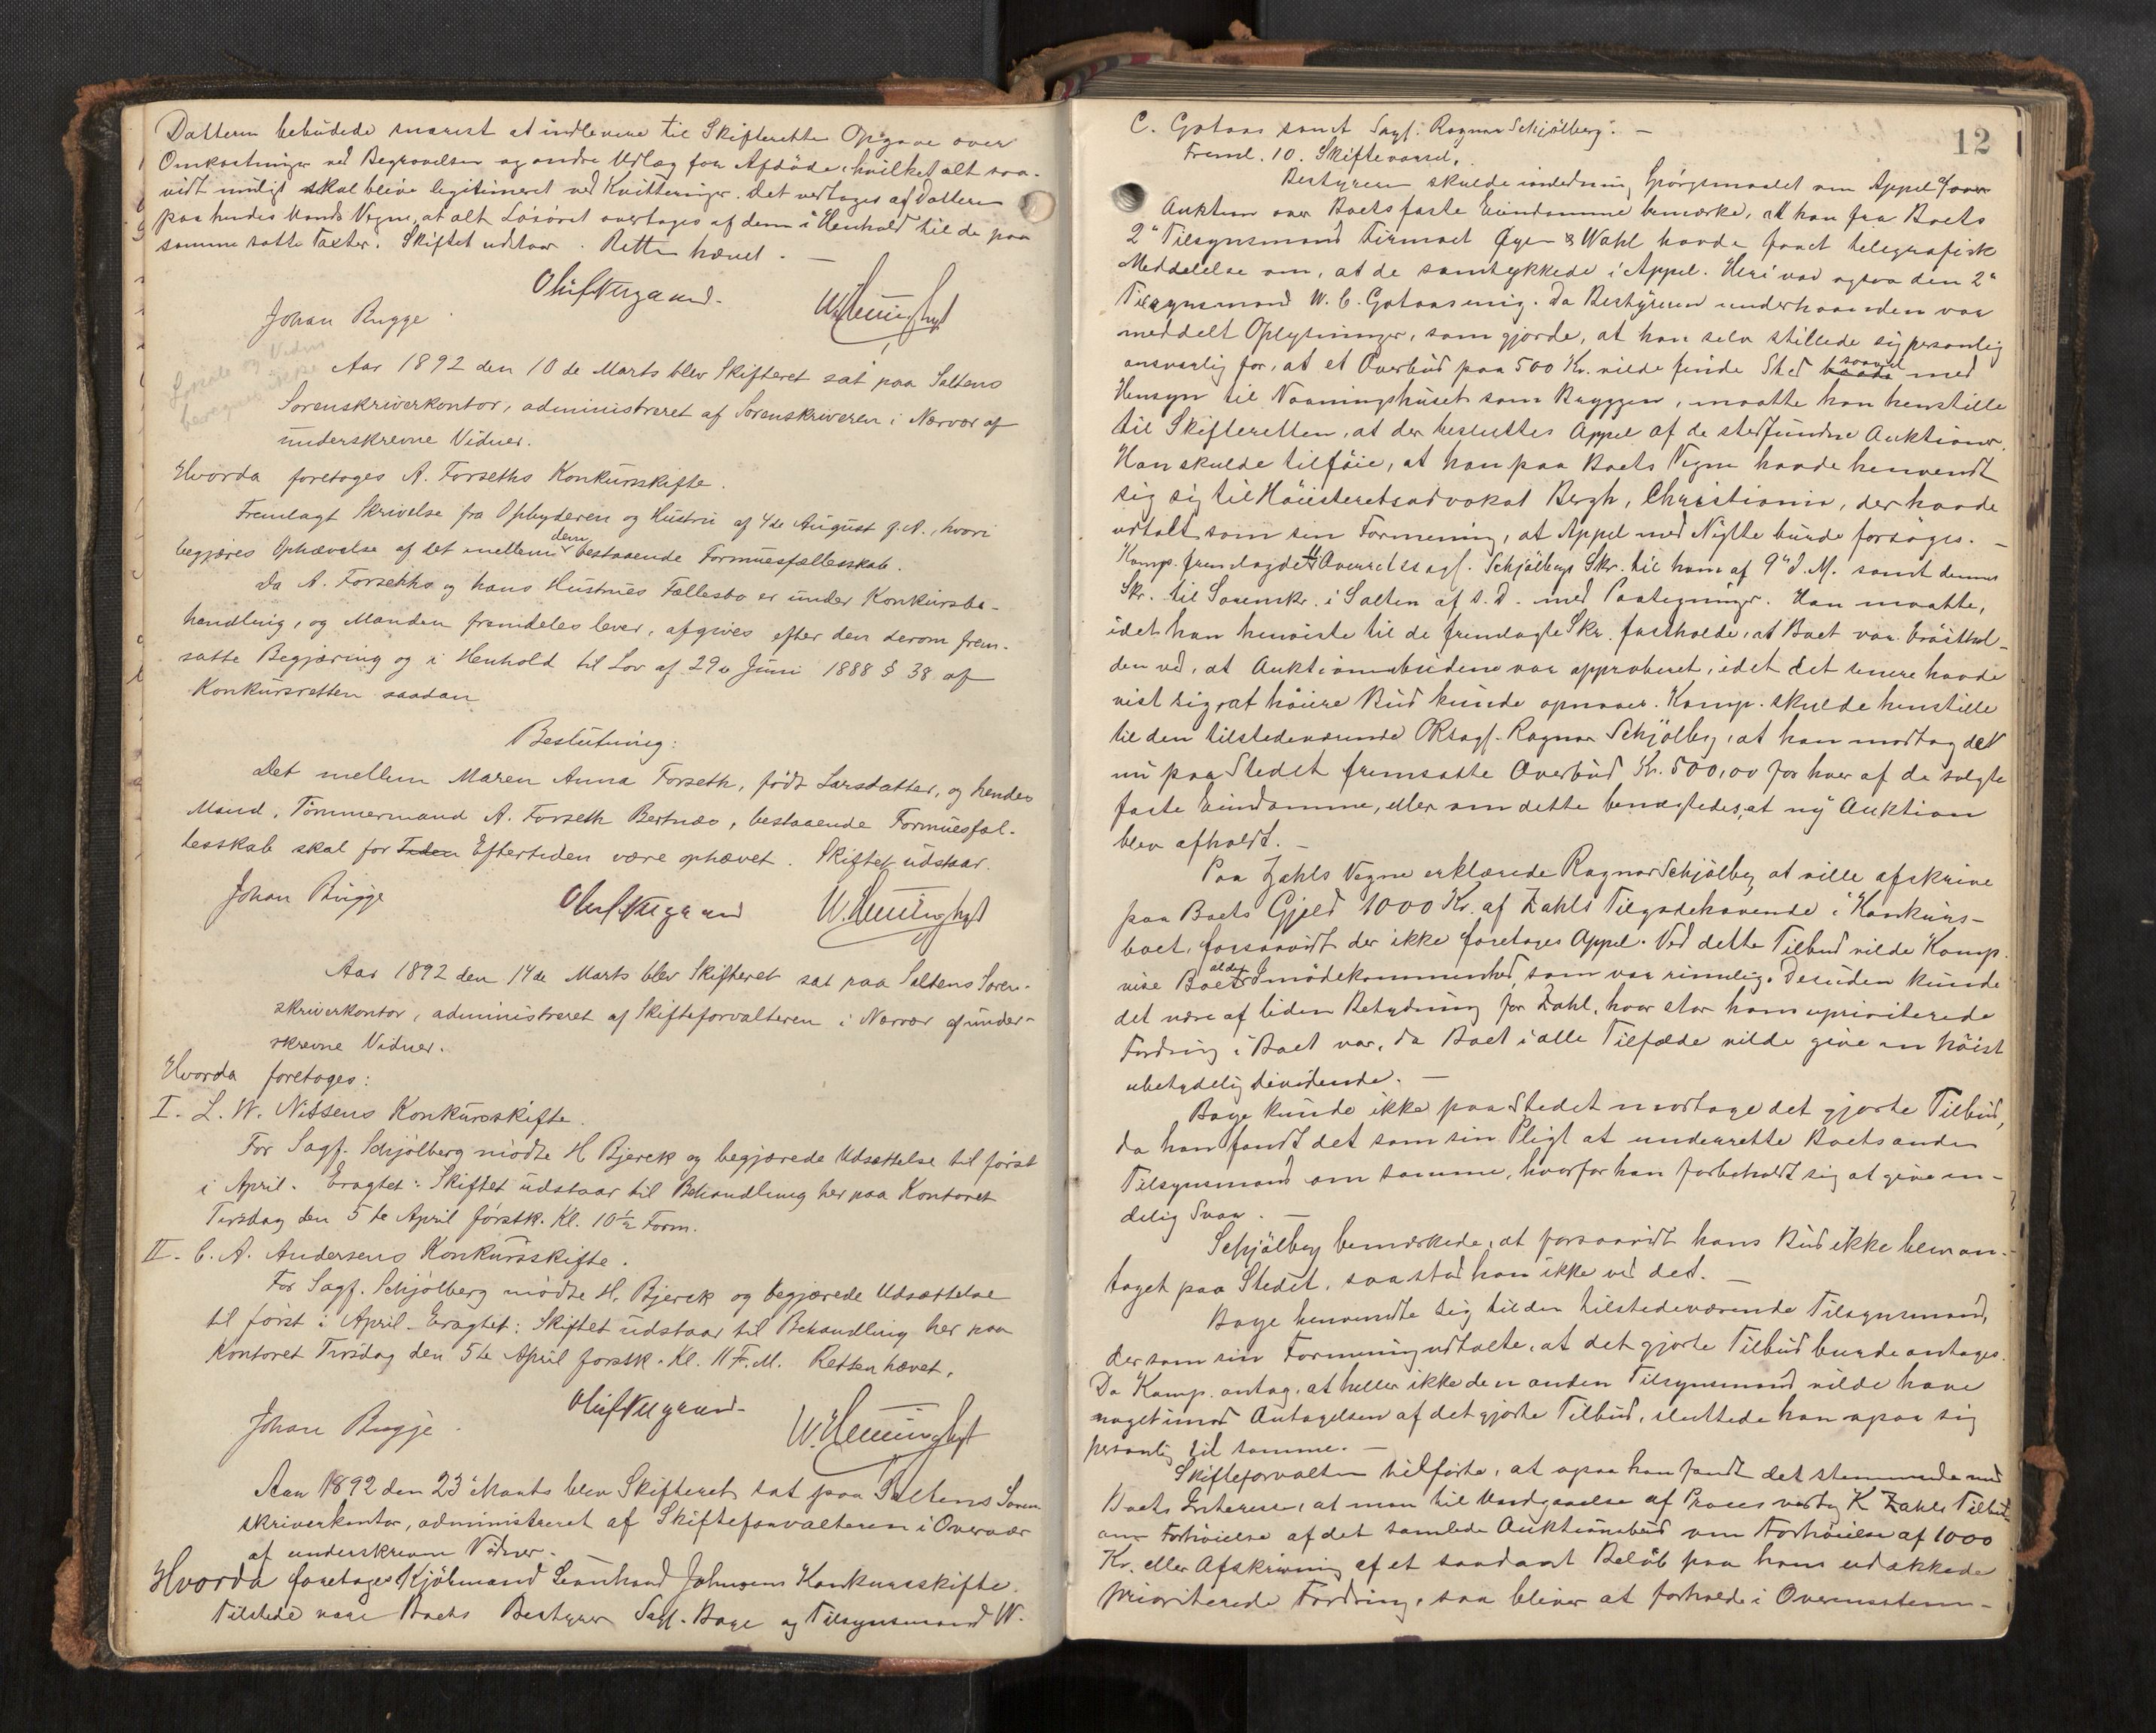 Datteren bebudede snarest at indlevere til Skifteretten Opgave over
Omkostninger ved Begravelsen og andre Udlæg for Afdøde, hvilket alt saa-
vidt muligt skal blive legitimeret ved Kvitteringer. Det vedtages af Datteren
paa hendes Mands Vegne, at alt Løsøret overtages af dem i Henhold til de paa
samme satte Taxter. Skiftet udstaar. Retten hævet. —
Johan Bugge
Aar 1892 den 10de Marts blev Skifteret sat paa Saltens
Sorenskriverkontor, administreret af Sorenskriveren i Nærvær af
underskrevne Vidner.
Hvorda foretoges A. Forseths Konkursskifte.
Fremlagt Skrivelse fra Opbyderen og Hustru af 4de August f. A., hvori
begjæres Ophævelse af det mellem dem bestaaende Formuesfællesskab.
Da A. Forseths og hans Hustrues Fællesbo er under Konkursbe-
handling, og Manden fremdeles lever, afgives efter den derom frem-
satte Begjæring og i Henhold til Lov af 29de Juni 1888 § 38 af
Konkursretten saadan
Beslutning:
Det mellem Maren Anna Forseth, født Larsdatter, og hendes
Mand, Tømmermand A. Forseth Bertnæs, bestaaende Formuesfæl-
lesskab skal for Tiden Eftertiden være ophævet. Skiftet udstaar.
Johan Bugge
Aar 1892 den 14de Marts blev Skifteret sat paa Saltens Soren-
skriverkontor, administreret af Skifteforvalteren i Nærvær af under-
skrevne Vidner.
Hvorda foretoges:
I. L. W. Nissens Konkursskifte.
For Sagf. Schjølberg mødte H Bjerck og begjærede Udsættelse til først
i April. Eragtet: Skiftet udstaar til Behandling her paa Kontoret
Tirsdag den 5te April førstk. Kl. 10½ Form.
II. C. A. Andersens Konkursskifte.
For Sagf. Schjølberg mødte H. Bjerck og begjærede Udsættelse
til først i April. Eragtet: Skiftet udstaar til Behandling her paa
Kontoret Tirsdag den 5te April førstk. Kl. 11 F.M. Retten hævet.
Johan Bugge.
Aar 1892 den 23' Marts blev Skifteret sat paa Saltens Soren
skriverkontor, administreret af Skifteforvalteren i Overvær
af underskrevne Vidner.
Hvorda foretoges Kjøbmand Leonhard Johnsens Konkursskifte.
Tilstede vare Boets Bestyrer Sagf. Bage og Tilsynsmand W.
12
C. Gotaas samt Sagf. Ragnar Schjølberg. —
Freml. 10. Skiftevarsel.
Bestyreren skulde indledning Spørgsmaalet om Appel af
Auktion over Boets faste Eiendomme bemærke, at han fra Boets
2' Tilsynsmand Firmaet Øyen & Wahl havde faaet telegrafisk
Meddelelse om, at de samtykkede i Appel. Heri var ogsaa den 2'
Tilsynsmand W. C. Gotaas enig. Da Bestyreren underhaanden var
meddelt Oplysninger, som gjorde, at han selv stillede sig personlig
ansvarlig for, at et Overbud paa 500 Kr. vilde finde Sted baade saavel med
Hensyn til Vaaningshuset som Bryggen, maatte han henstille
til Skifteretten, at der besluttes Appel af de stedfundne Auktioner.
Han skulde tilføie, at han paa Boets Vegne havde henvendt
sig sig til Høiesteretsadvokat Bergh, Christiania, der havde
udtalt som sin Formening, at Appel med Nytte burde forsøges. —
Komp. fremlagde 11 Overretssagf. Schjølbergs Skr. til ham af 9' d. M. samt dennes
Skr. til Sorenskr. i Salten af s. D. med Paategninger. Han maatte,
idet han henviste til de fremlagte Skr. fastholde, at Boet var brøsthol-
den ved, at Auktionsbudene var approberet, idet det senere havde
vist sig, at høiere Bud kunde opnaaes. Komp. skulde henstille
til den tilstedeværende ORsagf. Ragnar Schjølberg, at han modtog det
nu paa Stedet fremsatte Overbud Kr. 500,00 for hver af de solgte
faste Eiendomme, eller om dette benægtedes, at ny Auktion
blev afholdt. —
Paa Zahls Vegne erklærede Ragnar Schjølberg at ville afskrive
paa Boets Gjeld 1000 Kr. af Zahls Tilgodehavende i Konkurs-
boet, forsaavidt der ikke foretages Appel. Ved dette Tilbud vilde Komp.
vise Boet al den Imødekommenhed, som var rimelig. Desuden kunde
det være af liden Betydning for Zahl, hvor stor hans uprioriterede
Fordring i Boet var, da Boet i alle Tilfælde vilde give en høist
ubetydelig Dividende. —
Bage kunde ikke paa Stedet modtage det gjorte Tilbud,
da han fandt det som sin Pligt at underrette Boets anden
Tilsynsmand om samme, hvorfor han forbeholdt sig at give en-
delig Svar. —
Schjølberg bemærkede, at forsaavidt hans Bud ikke blev an-
taget paa Stedet, saa stod han ikke ved det. —
Bage henvendte sig til den tilstedeværende Tilsynsmand,
der som sin Formening udtalte, at det gjorte Tilbud burde antages.
Da Komp. antog, at heller ikke den anden Tilsynsmand vilde have
noget imod Antagelsen af det gjorte Tilbud, sluttede han ogsaa sig
personlig til samme. —
Skifteforvalteren tilførte, at ogsaa han fandt det stemmende med
Boets Interesse, at man til Undgaaelse af Proces vedtog K Zahls Tilbud
om Forhøielse af det samlede Auktionsbud om Forhøielse af 1000
Kr. eller Afskrivning af et saadant Beløb paa hans udækkede
prioriterede Fordring, saa bliver at forholde i Overensstem-